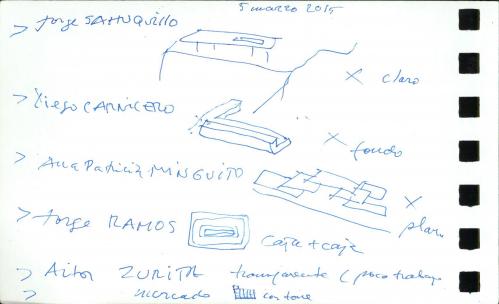 5 marzo 2015
> Jorge SAHUQUILLO
x claro
> Diego CARNICERO
x fondo
> Ana Patricia MINGUITO
x plano
> Jorge RAMOS
caja + caja
> Aitor ZURITA transparente (poco trabajo
> mercado